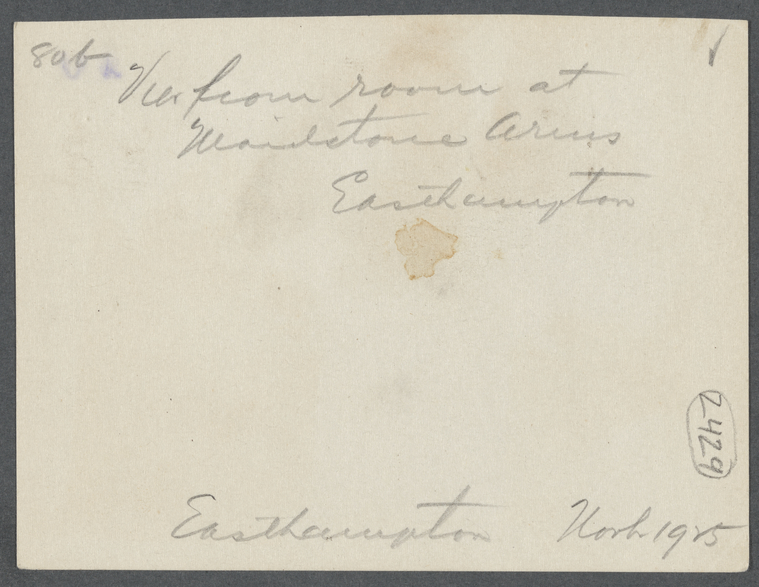 80b
View from room at
Maidstone Arms
Easthampton
2429
Easthampton 1925